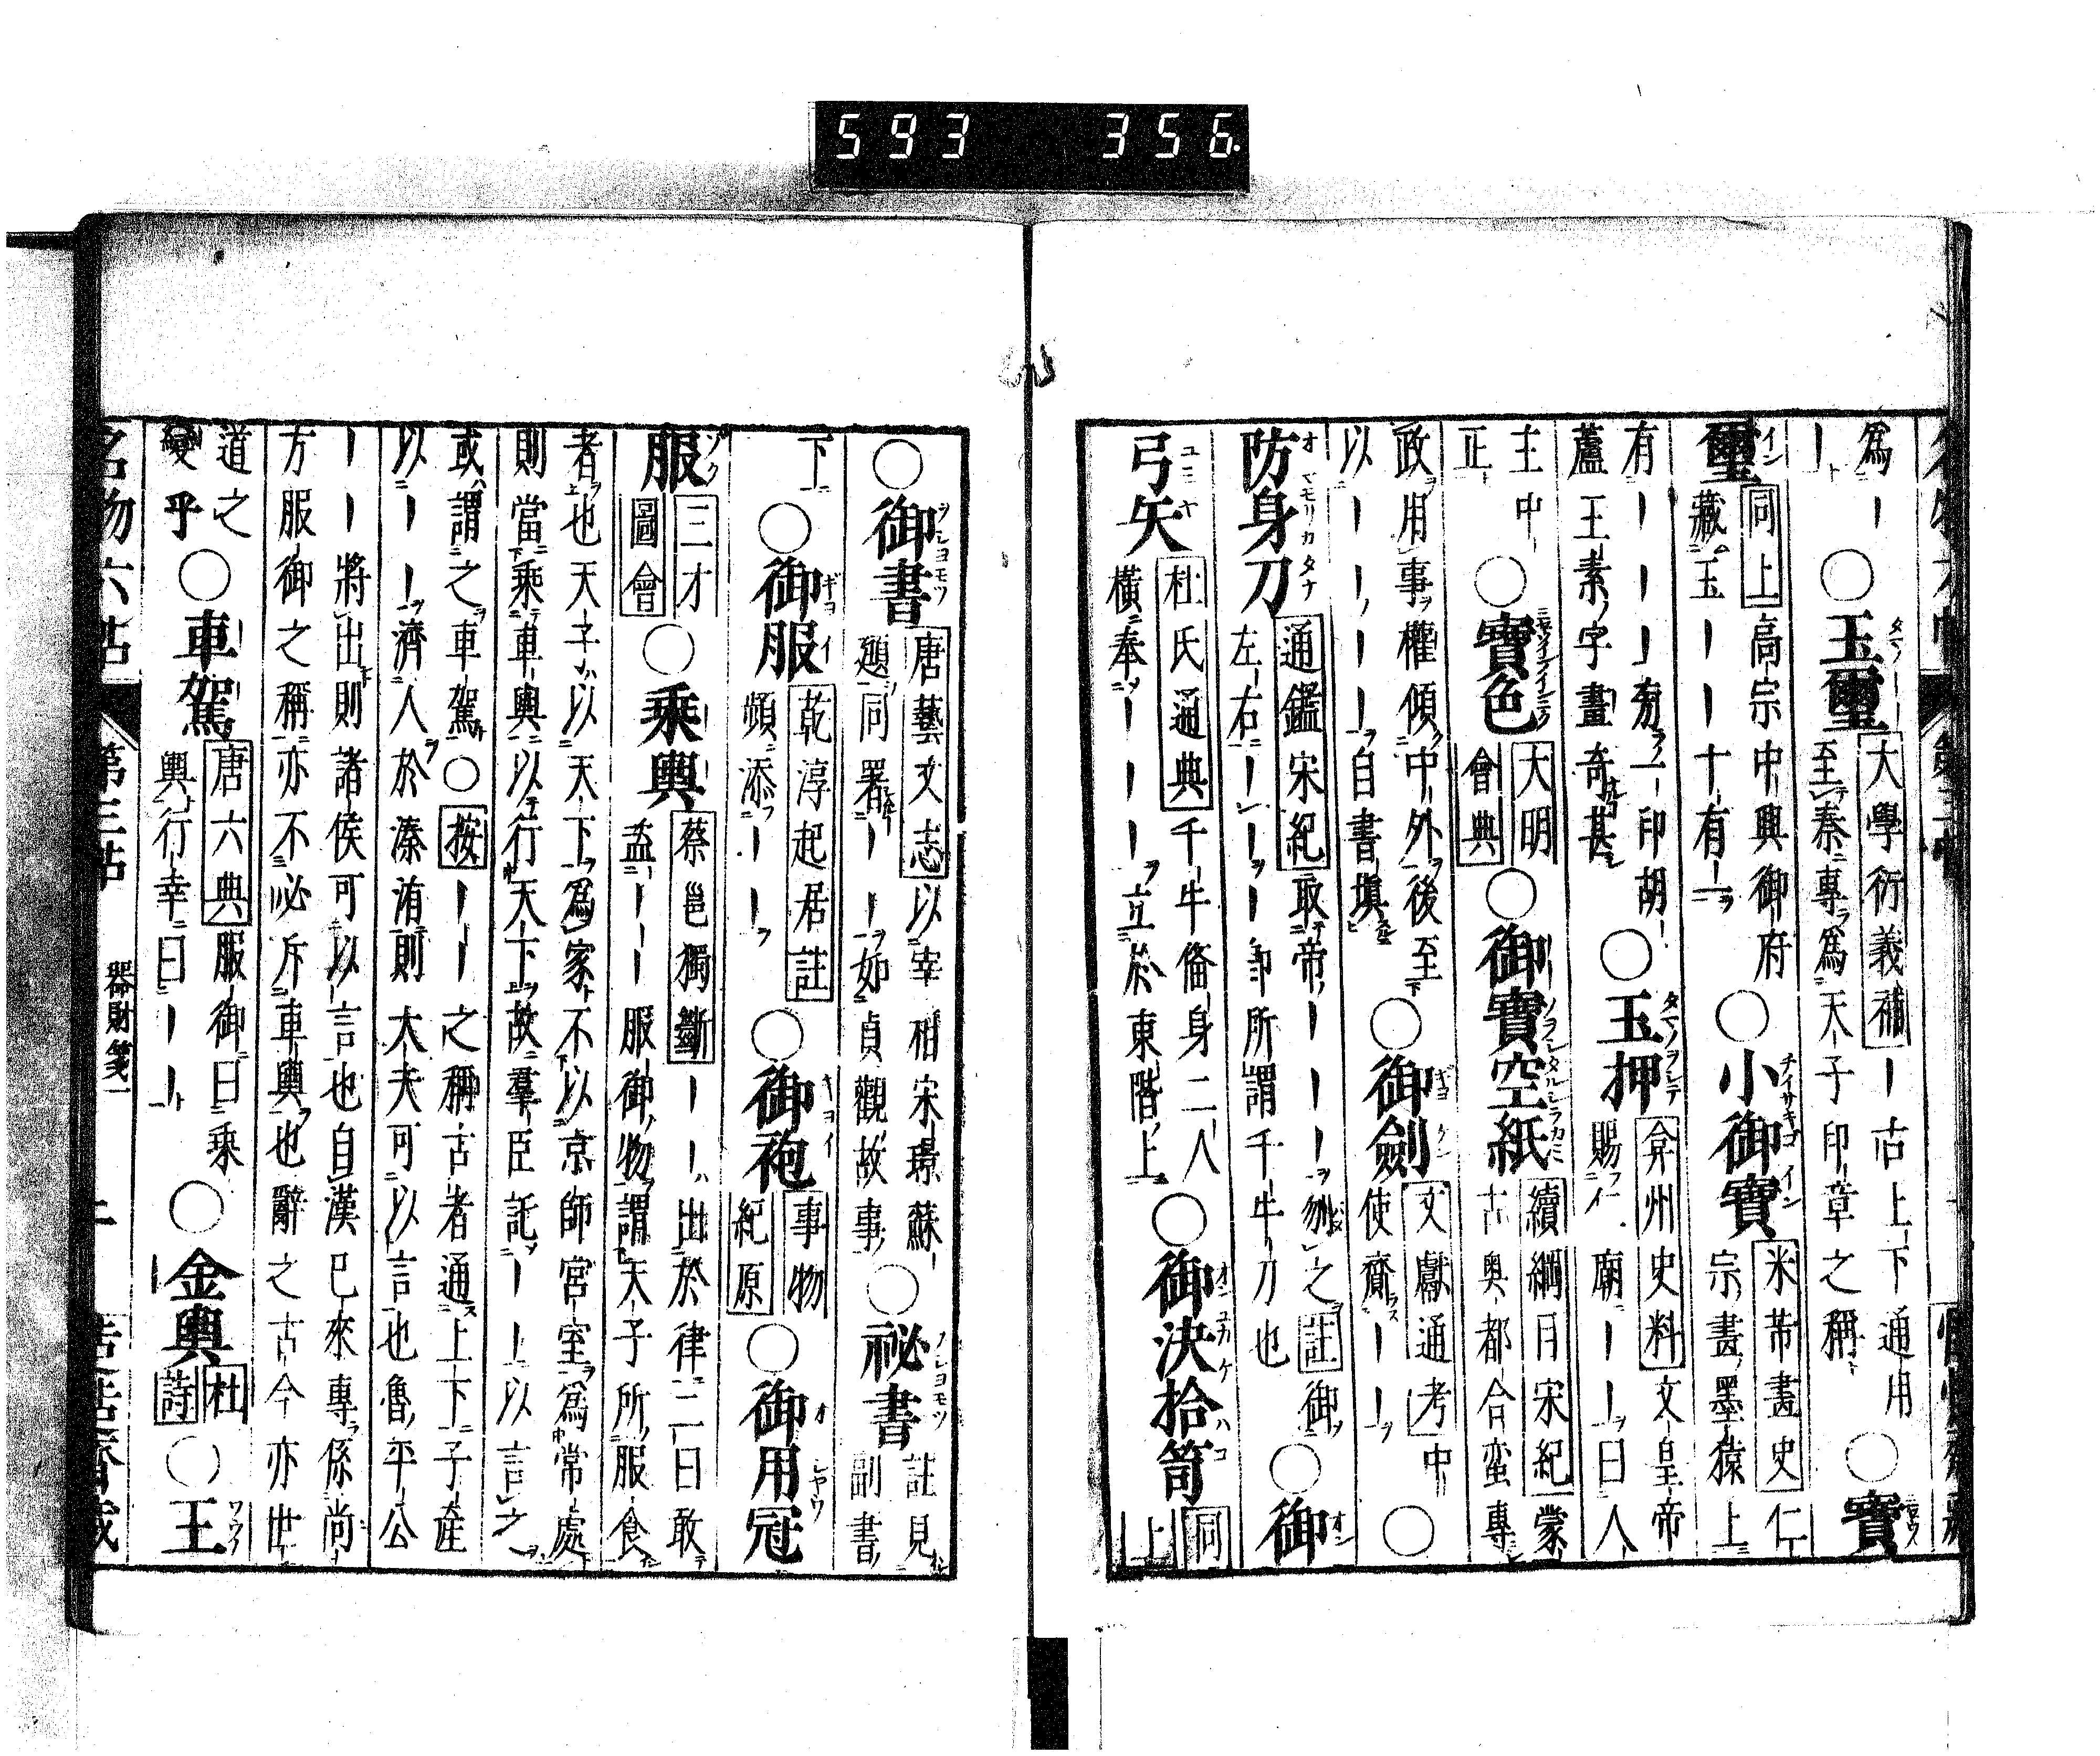 593 356
爲｜
｜
○玉璽
大學衍義補｜古上下通用
至秦專爲天子印章之稱
○寶
璽
同上高宗中興御府
藏玉｜｜｜十有｜
○小御寶
米芾畫史仁
宗畫墨猿上
有｜｜｜
蘆王素字畫奇甚
○玉押
弇州史料文皇帝
賜 廟｜｜｜曰人
主中
正
○寶色
大明
會典
○御寶空紙
續綱目宋紀蒙
古奥都合蛮專
政用事權傾中外後至
以｜｜｜｜自書填
○御劍
文獻通考中
使齎｜｜
○
防身刀
通鑑宋紀取帝｜｜｜｜刎之註御
左右｜｜｜卽所謂千牛刀也
○御
弓矢
杜氏通典千牛備身二人
横奉｜｜｜立於東階上
○御決拾笥
同
上
○御書
唐藝文志以宰相宋璟蘇
頲同署｜｜如貞觀故事
○祕書
註見
副書
下
○御服
乾淳起居註
頻添｜｜
○御袍
事物
紀原
○御用冠
服
三才
圖會
○乘輿
蔡邕獨斷｜｜出於律二曰敢
盗｜｜｜服御物謂天子所服食
者也天子以天下爲家不以京師宮室爲常處
則當乘車輿以行天下故羣臣託｜｜以言之
或謂之車駕○按｜｜之稱古者通上下子産
以｜｜濟人於溱洧則大夫可以言也魯平公
｜｜將出則諸侯可以言也自漢已來專係尚
方服御之稱亦不必斥車輿也辭之古今亦世
道之
變乎
○車駕
唐六典服御曰乘
輿行幸曰｜｜
○金輿
杜
詩
○王
名物六帖 第三帖 器財箋一